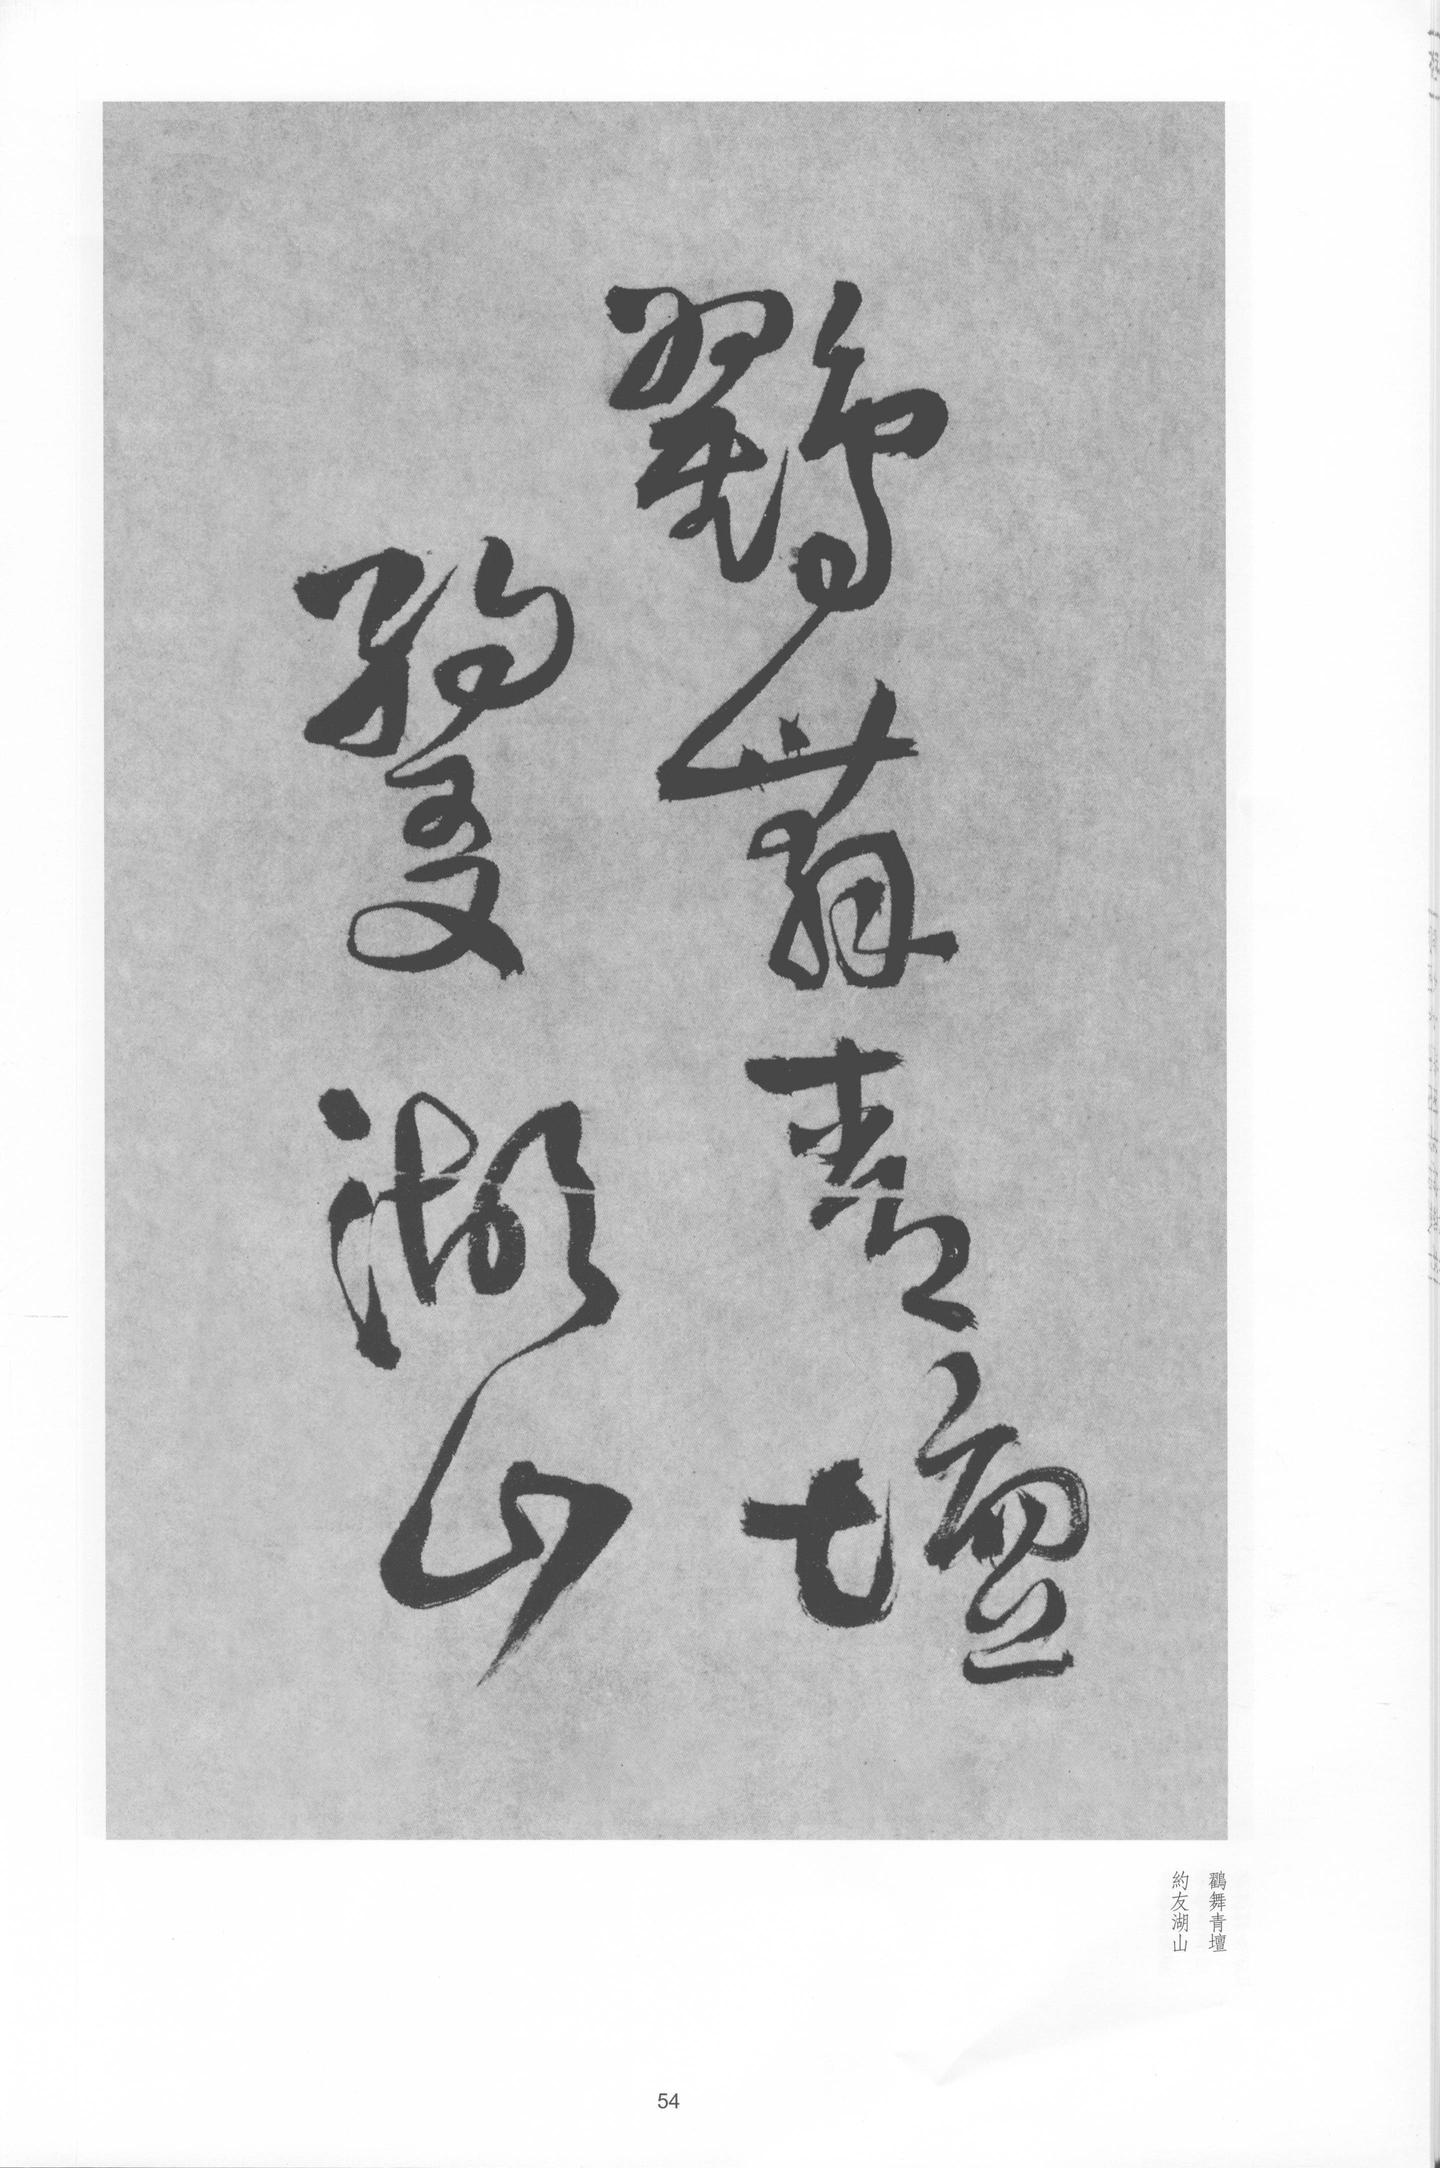 鸐舞青壇
約友湖山
鸐舞青壇
約友湖山
54